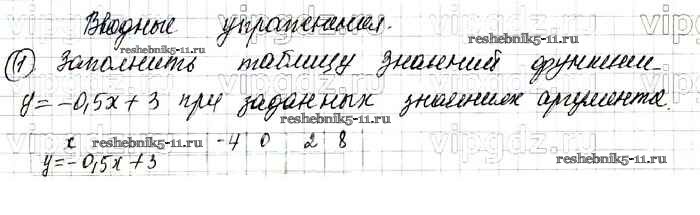 Вводные упражнения.
① Заполнить таблицу значений функции
y = -0,5x + 3 при заданных значениях аргумента.
x -4 0 2 8
y = -0,5x + 3
vipgdz.ru
reshebnik5-11.ru
reshebnik5-11.ru
reshebnik5-11.ru
reshebnik5-11.ru
reshebnik5-11.ru